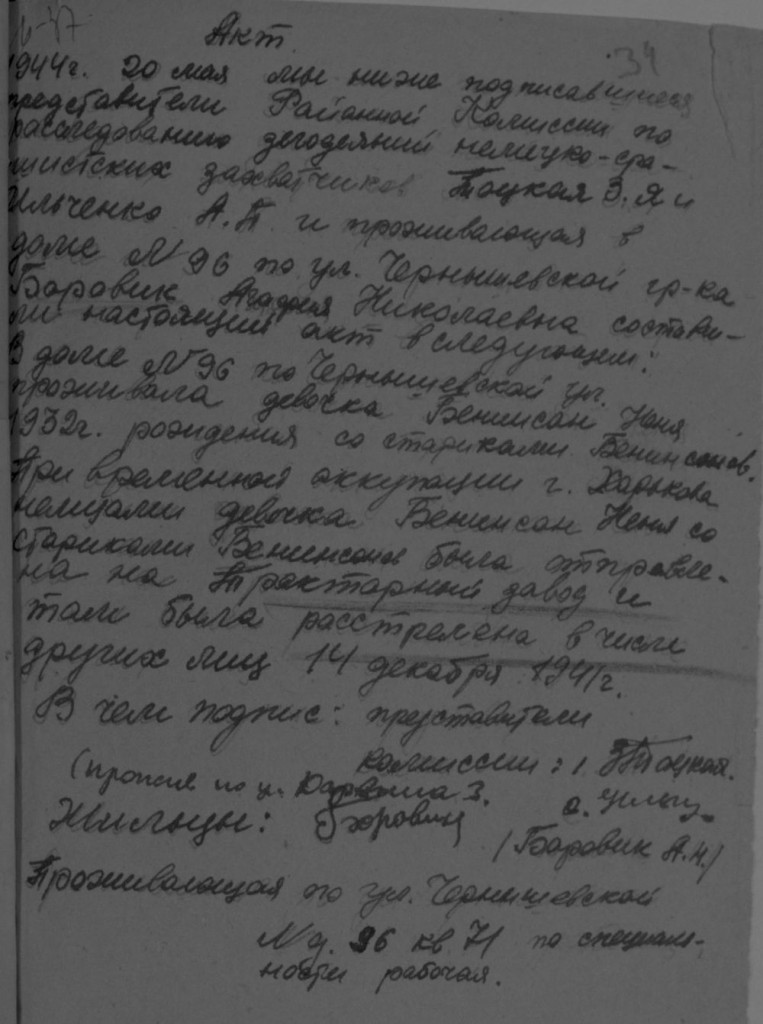 34
Акт
1944г. 20 мая мы ниже подписавшиеся
представители Районной Комиссии по
расследованию злодеяний немецко-фа-
шистских захватчиков Тоцкая З. Я и
Ильченко А.П. и проживающая в
доме №96 по ул. Чернышевской гр-ка
Боровик Николаевна состави-
ли настоящий акт в следующем:
В доме №96 по Чернышевской ул.
проживала девочка Бенинсон Неня
1932г. рождения со стариками Бенинсонов.
При временной оккупации г. Харькова
немцами девочка Бенинсон Неня со
стариками Бенинсонов была отправле-
на на Тракторный завод и
там была расстреляна в числе
других лиц 14 декабря 1941г.
В чем подпис: представители
комиссии: Тоцкая.
2.
Жильцы: Боровик
/Боровик А.Н./
Проживающая по ул. Чернышевской
№ д. 96 кв 71 по специаль-
ности рабочая.